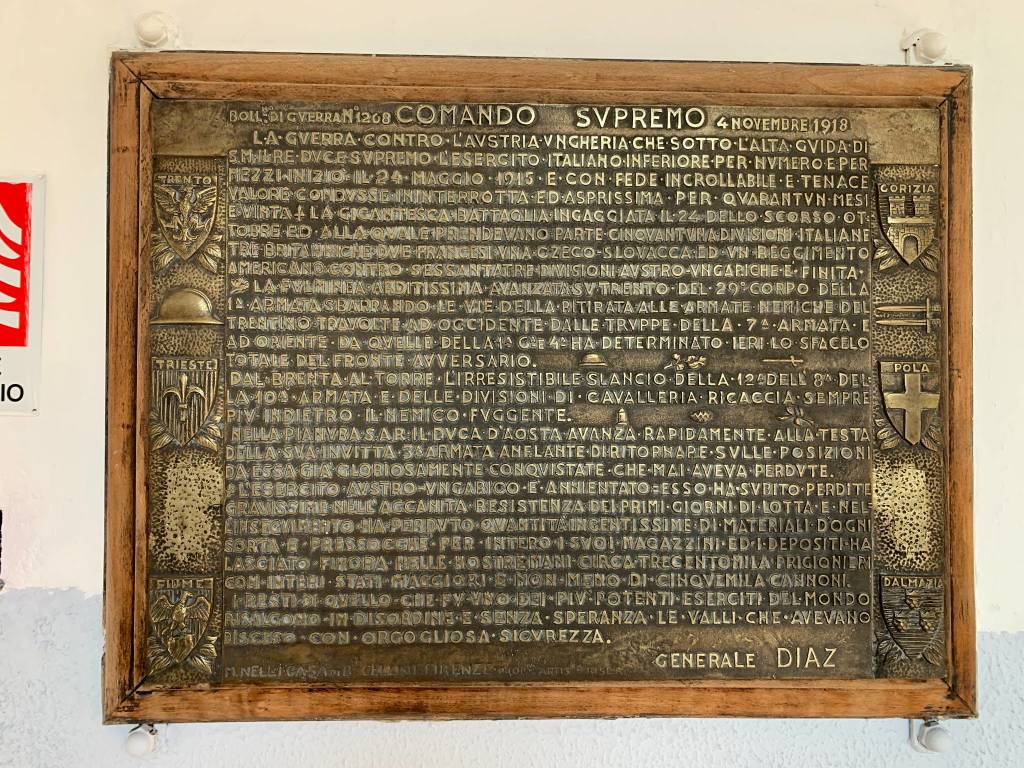 BOLL.NO DI GVERRA No 1268 COMANDO SVPREMO 4 NOVEMBRE 1918
LA·GVERRA·CONTRO·L'AVSTRIA·VNGHERIA·CHE·SOTTO·L'ALTA·GVIDA·DI
S.M.IL·RE·DVCE·SVPREMO·L'ESERCITO·ITALIANO·INFERIORE·PER·NVMERO·E·PER
MEZZI·INIZIÒ·IL·24·MAGGIO·1915·E·CON·FEDE·INCROLLABILE·E·TENACE
VALORE·CONDVSSE·ININTERROTTA·ED·ASPRISSIMA·PER·QVARANTVN·MESI
È·VINTA LA·GIGANTESCA·BATTAGLIA·INGAGGIATA·IL·24·DELLO·SCORSO·OT-
TOBRE·ED·ALLA·QVALE·PRENDEVANO·PARTE·CINQVANTVNA·DIVISIONI·ITALIANE
TRE·BRITANNICHE·DVE·FRANCESI·VNA·CZECO-SLOVACCA·ED·VN·REGGIMENTO
AMERICANO·CONTRO·SESSANTATRE·DIVISIONI·AVSTRO·VNGARICHE·È·FINITA·
LA·FVLMINEA·ARDITISSIMA·AVANZATA·SV·TRENTO·DEL·29º·CORPO·DELLA
1ª·ARMATA·SBARRANDO·LE·VIE·DELLA·RITIRATA·ALLE·ARMATE·NEMICHE·DEL
TRENTINO·TRAVOLTE·AD·OCCIDENTE·DALLE·TRVPPE·DELLA·7ª·ARMATA·E
AD·ORIENTE·DA·QVELLE·DELLA·1ª 6ª E 4ª HA·DETERMINATO·IERI·LO·SFACELO
TOTALE·DEL·FRONTE·AVVERSARIO.
DAL·BRENTA·AL·TORRE·L'IRRESISTIBILE·SLANCIO·DELLA·12ª DELL'8ª DEL-
LA·10ª·ARMATA·E·DELLE·DIVISIONI·DI·CAVALLERIA·RICACCIA·SEMPRE
PIV·INDIETRO·IL·NEMICO·FVGGENTE.
NELLA·PIANVRA·S.A.R·IL·DVCA·D'AOSTA·AVANZA·RAPIDAMENTE·ALLA·TESTA
DELLA·SVA·INVITTA·3ª·ARMATA·ANELANTE·DI·RITORNARE·SVLLE·POSIZIONI
DA·ESSA·GIÀ·GLORIOSAMENTE·CONQVISTATE·CHE·MAI·AVEVA·PERDVTE.
L'ESERCITO·AVSTRO-VNGARICO·E'·ANNIENTATO=ESSO·HA·SVBITO·PERDITE
GRAVISSIME·NELL'ACCANITA·RESISTENZA·DEI·PRIMI·GIORNI·DI·LOTTA·E·NEL-
L'INSEGVIMENTO·HA·PERDVTO·QVANTITÀ·INGENTISSIME·DI·MATERIALI·D'OGNI
SORTA·E·PRESSOCCHE·PER·INTERO·I·SVOI·MAGAZZINI·ED·I·DEPOSITI·HA
LASCIATO·FINORA·NELLE·NOSTRE·MANI·CIRCA·TRECENTOMILA·PRIGIONIERI
CON·INTERI·STATI·MAGGIORI·E·NON·MENO·DI·CINQVEMILA·CANNONI.
I·RESTI·DI·QVELLO·CHE·FV·VNO·DEI·PIV·POTENTI·ESERCITI·DEL·MONDO
RISALGONO·IN·DISORDINE·E·SENZA·SPERANZA·LE·VALLI·CHE·AVEVANO
DISCESO·CON·ORGOGLIOSA·SICVREZZA.
GENERALE DIAZ
M.NELLI·CASA FIRENZE
TRENTO
TRIESTE
FIUME
GORIZIA
POLA
DALMAZIA
IO